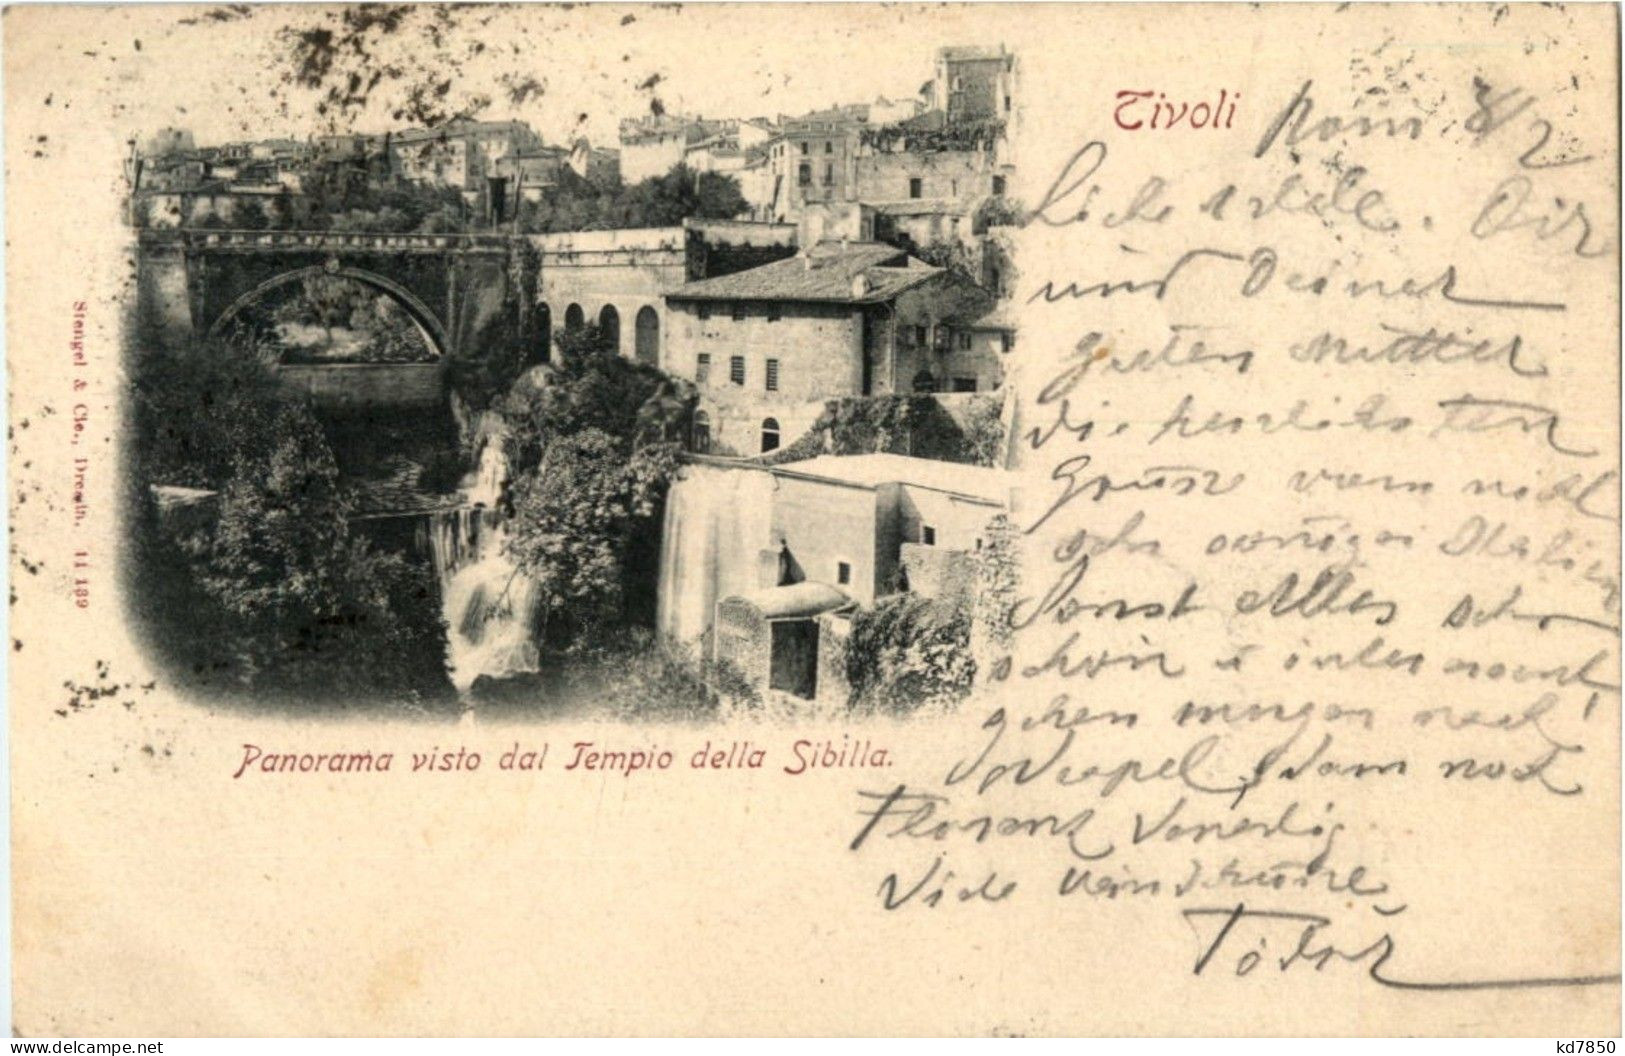 Tivoli
Rom 8/2
Liebe Adele. Dir
und Deiner
guten Mutter
die herzlichsten
Grüsse vom nicht
sehr sonnigen Italien
Sonst Alles sehr
schön &
gehen morgen nach
Neapel, dann nach
Florenz Venedig
Viele
Panorama visto dal Tempio della Sibilla.
Stengel & Cie., Dresdn. 11 189
kd7850